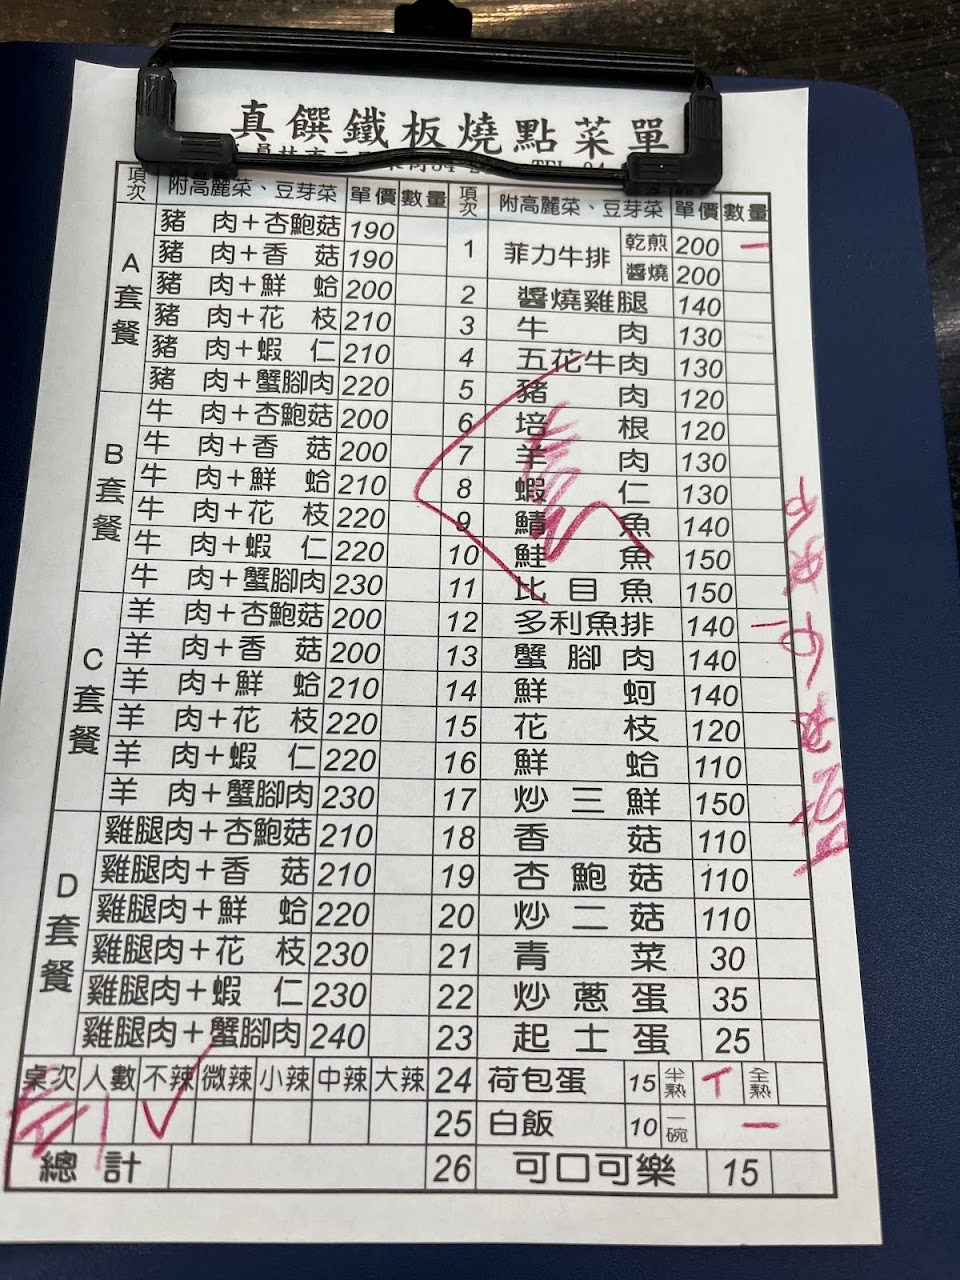 真饌鐵板燒點菜單
項次 附高麗菜、豆芽菜 單價 數量 項次 附高麗菜、豆芽菜 單價 數量
A套餐
豬肉+杏鮑菇 190
豬肉+香菇 190
豬肉+鮮蛤 200
豬肉+花枝 210
豬肉+蝦仁 210
豬肉+蟹腳肉 220
B套餐
牛肉+杏鮑菇 200
牛肉+香菇 200
牛肉+鮮蛤 210
牛肉+花枝 220
牛肉+蝦仁 220
牛肉+蟹腳肉 230
C套餐
羊肉+杏鮑菇 200
羊肉+香菇 200
羊肉+鮮蛤 210
羊肉+花枝 220
羊肉+蝦仁 220
羊肉+蟹腳肉 230
D套餐
雞腿肉+杏鮑菇 210
雞腿肉+香菇 210
雞腿肉+鮮蛤 220
雞腿肉+花枝 230
雞腿肉+蝦仁 230
雞腿肉+蟹腳肉 240
桌次 人數 不辣 微辣 小辣 中辣 大辣
總計
1 菲力牛排 乾煎 200 一
醬燒 200
2 醬燒雞腿 140
3 牛肉 130
4 五花牛肉 130
5 豬肉 120
6 培根 120
7 羊肉 130
8 蝦仁 130
9 鯖魚 140
10 鮭魚 150
11 比目魚 150
12 多利魚排 140 一
13 蟹腳肉 140
14 鮮蚵 140
15 花枝 120
16 鮮蛤 110
17 炒三鮮 150
18 香菇 110
19 杏鮑菇 110
20 炒二菇 110
21 青菜 30
22 炒蔥蛋 35
23 起士蛋 25
24 荷包蛋 15 半熟 全熟
25 白飯 10 一碗 一
26 可口可樂 15